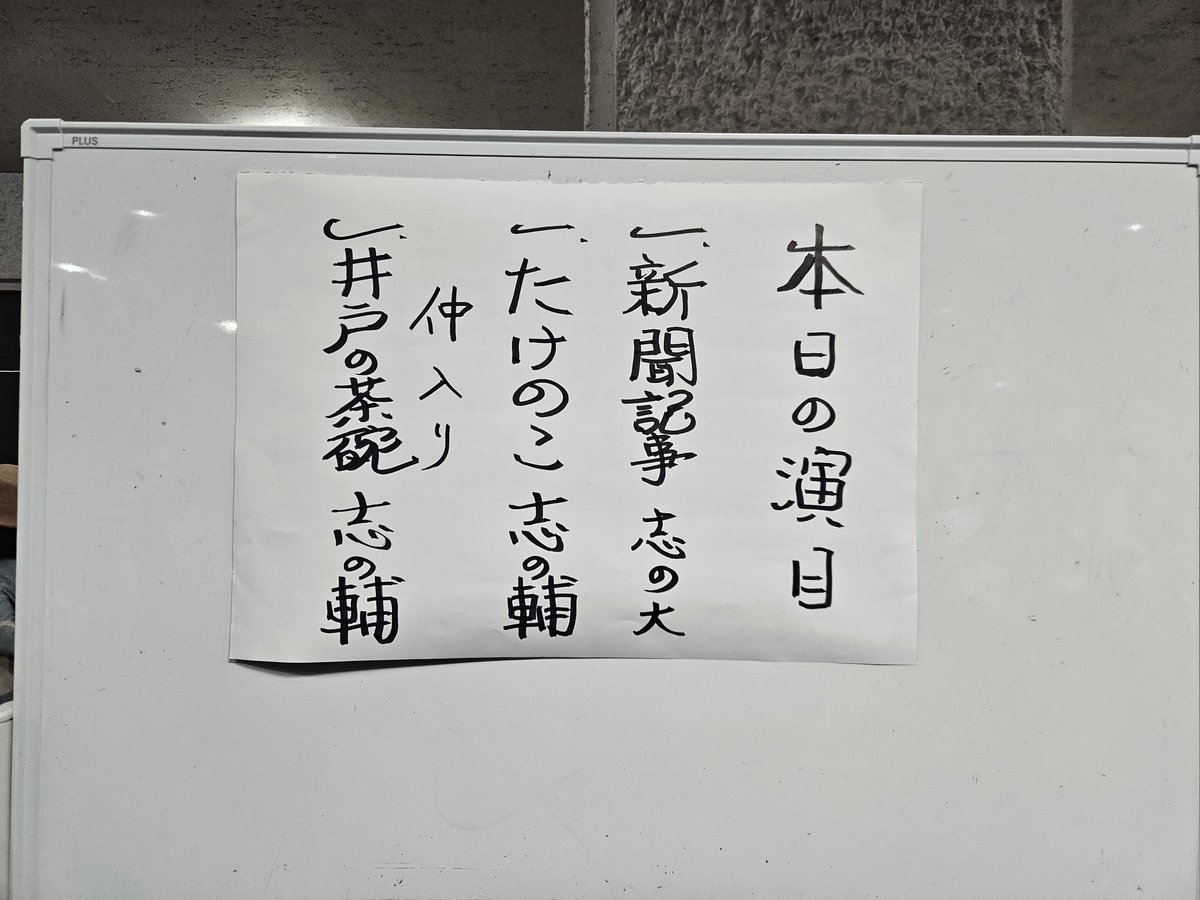 PLUS
本日の演目
一、新聞記事 志の大
一、たけのこ 志の輔
仲入り
一、井戸の茶碗 志の輔